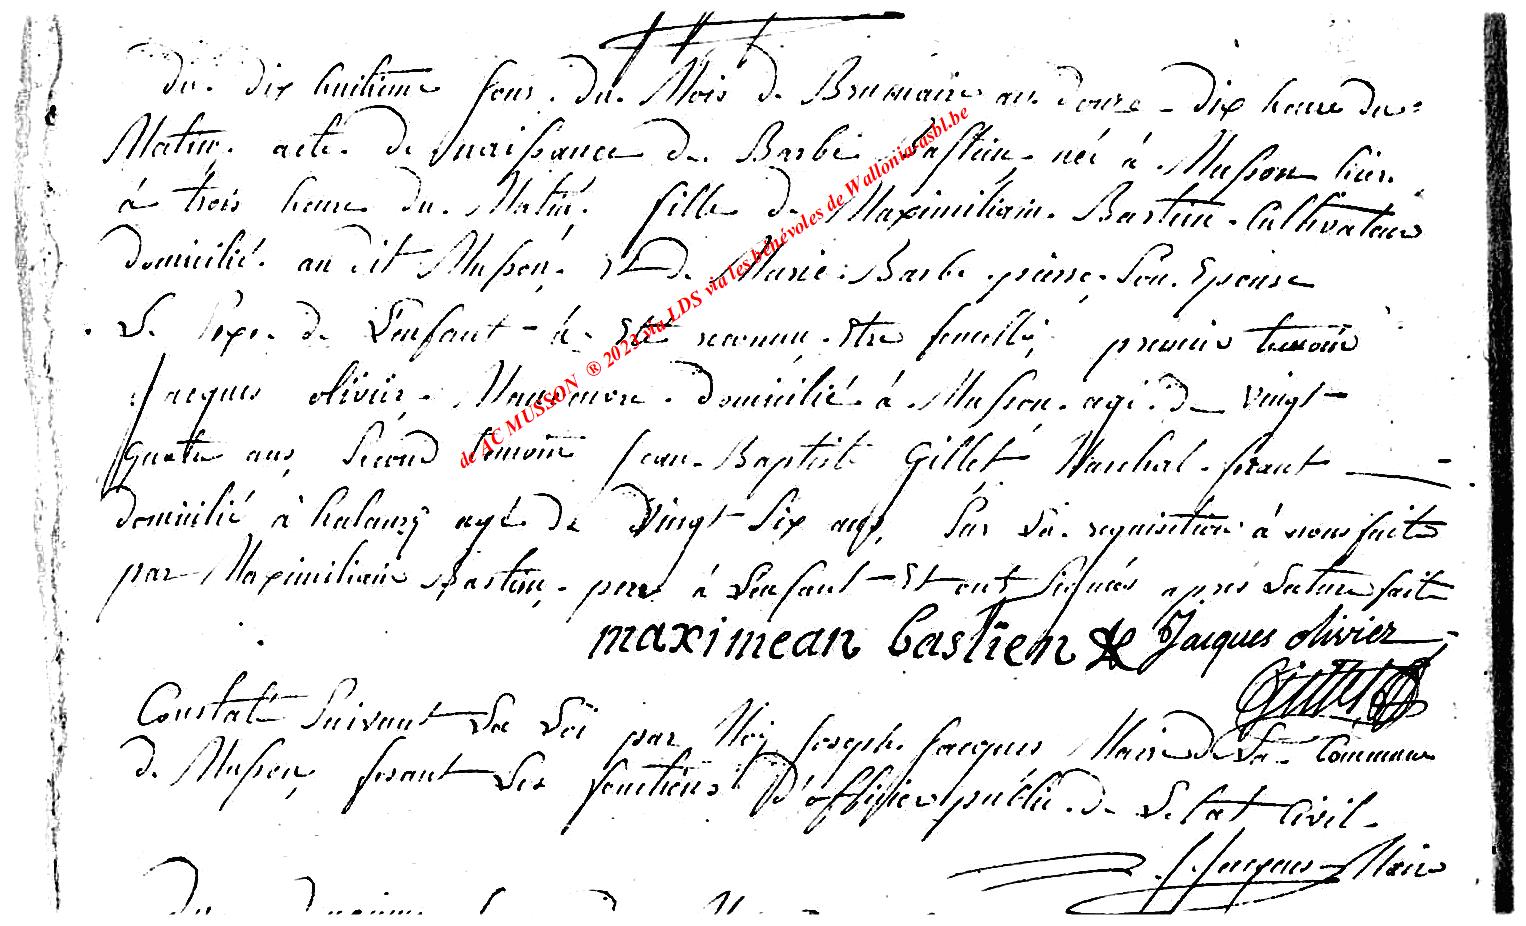 du dix huitieme jour du Mois de Brumaire an douze - dix heure du
Matin acte de naissance de Barbe Bastin née à Musson hier
à trois heure du Matin, fille de Maximiliain Bastin Cultivateur
domicilié au dit Musson, Et de Marie Barbe pierre Son Epouse
Le Sexe de L'enfant à Eté reconnu Etre femelle, premier temoin
Jacques olivier Manoeuvre domicilié à Musson agé de vingt
quatre ans, Second temoin Jean Baptiste Gillet Marchal ferant
domicilié à halanzy agé de Vingt Six ans, Sur La requisition à nous faite
par Maximiliain Bastin, pere à L'enfant Et ont Signés après Lecture faite
maximean bastien Jacques olivier
Gillet
Constaté Suivant La Loi par Moi Joseph Jacques Maire de La Commune
de Musson, fesant Les fonctions d'officier públic de L'etat Civil
J. Jacques Maire
de AC MUSSON ® 2023 via LDS via les bénévoles de Wallonia-asbl.be